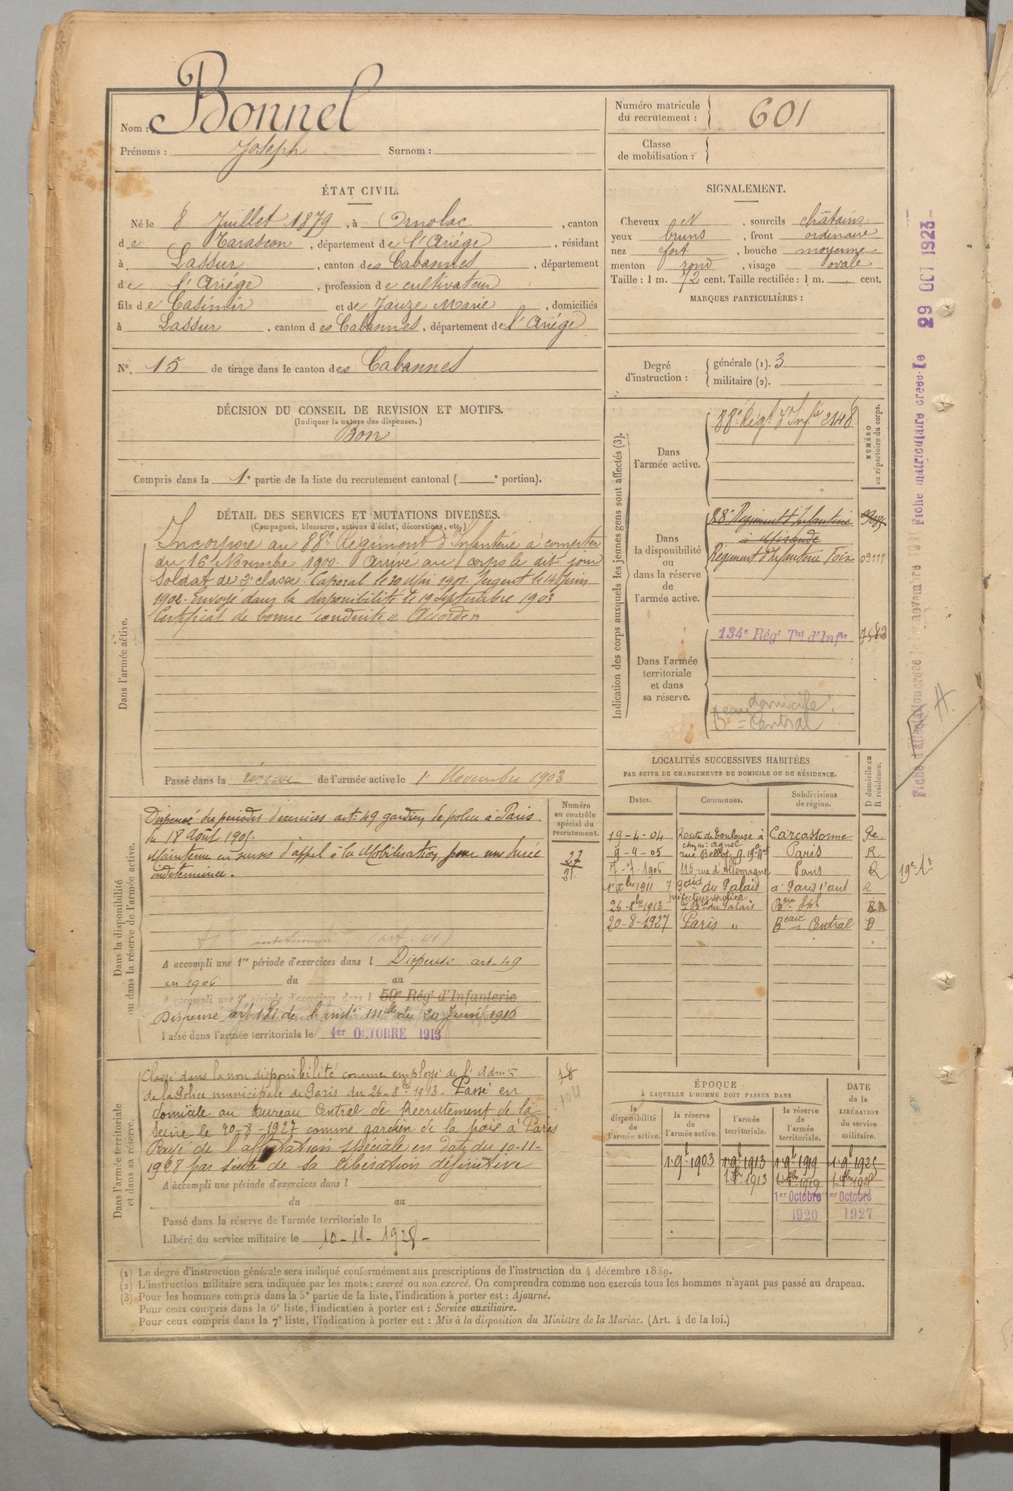 Nom : Bonnel
Prénoms : Joseph Surnom :
Numéro matricule du recrutement : 601
Classe de mobilisation :
ÉTAT CIVIL.
Né le 8 Juillet 1879, à Ornolac, canton
de Tarascon, département de l'Ariège, résidant
à Lassur, canton des Cabannes, département
de l'Ariège, profession de cultivateur
fils de Casimir et de Jauze Marie, domiciliés
à Lassur, canton des Cabannes, département de l'Ariège
N°. 15 de tirage dans le canton des Cabannes
SIGNALEMENT.
Cheveux et, sourcils châtains
yeux bruns, front ordinaire
nez fort, bouche moyenne
menton rond, visage ovale
Taille : 1 m. 72 cent. Taille rectifiée : 1 m. cent.
MARQUES PARTICULIÈRES :
Degré d'instruction : générale (1). 3
militaire (2).
DÉCISION DU CONSEIL DE REVISION ET MOTIFS.
(Indiquer la nature des dispenses.)
Bon
Compris dans la 1e partie de la liste du recrutement cantonal ( e portion).
DÉTAIL DES SERVICES ET MUTATIONS DIVERSES.
(Campagnes, blessures, actions d'éclat, décorations, etc.)
Dans l'armée active.
Incorporé au 88e Régiment d'Infanterie à compter
du 16 Novembre 1900. Arrivé au corps le dit jour
Soldat de 2e classe. Caporal le Mai 1901. Sergent le Juin
1902. Envoyé dans la disponibilité le 19 Septembre 1903
Certificat de bonne conduite Accordé
Passé dans la réserve de l'armée active le 1 Novembre 1903
Indication des corps auxquels les jeunes gens sont affectés (3).
NUMÉRO au répertoire du corps.
Dans l'armée active.
88e Régt d'Infie
Dans la disponibilité ou dans la réserve de l'armée active.
88e Régiment d'Infanterie
à Mirande
Régiment d'Infanterie Foix
Dans l'armée territoriale et dans sa réserve.
134e Régt Tal d'Infie
domicile :
Central
LOCALITÉS SUCCESSIVES HABITÉES
PAR SUITE DE CHANGEMENTS DE DOMICILE OU DE RÉSIDENCE.
Dates. Communes. Subdivisions de région. D domicile ou R résidence.
19-4-04 Route de Toulouse à Carcassonne
9-4-05 rue Bellot, 9, 19e Paris R
7-7-1906 115 rue d'Allemagne Paris R
1911 7 Bd du Palais à Paris
26-8-1913 7 Bd du Palais
20-8-1927 Paris " Beau Central D
Dans la disponibilité ou dans la réserve de l'armée active.
Numéro au contrôle spécial du recrutement.
Dispensé des périodes d'exercices art. 49 gardien de police à Paris
le 18 Août 1905.
Maintenu en sursis d'appel à la Mobilisation, pour une durée
indéterminée.
A accompli une 1re période d'exercices dans l Dispensé art. 49
en 1906 du au
A accompli une 2e période d'exercices dans l 59e Régt d'Infanterie
Dispensé
Passé dans l'armée territoriale le 1er OCTOBRE 1913
Dans l'armée territoriale et dans sa réserve.
Classé dans la non disponibilité comme employé de l'Admon
de la Police municipale de Paris du 26-8-1913. Passé en
domicile au Bureau Central de Recrutement de la
Seine le 20-8-1927 comme gardien de la paix à Paris
Rayé de l'affectation spéciale en date du 10-11-
1928 par suite de sa libération définitive
A accompli une période d'exercices dans l
du au
Passé dans la réserve de l'armée territoriale le
Libéré du service militaire le 10-11-1928-
ÉPOQUE
A LAQUELLE L'HOMME DOIT PASSER DANS
la disponibilité de l'armée active.
la réserve de l'armée active.
l'armée territoriale.
la réserve de l'armée territoriale.
DATE de la LIBÉRATION du service militaire.
1903 1913 1919 1925
1er Octobre 1920
1er Octobre 1927
29 OCT 1923
Fiche matriculaire créée le
(1) Le degré d'instruction générale sera indiqué conformément aux prescriptions de l'instruction du 4 décembre 1889.
(2) L'instruction militaire sera indiquée par les mots : exercé ou non exercé. On comprendra comme non exercés tous les hommes n'ayant pas passé au drapeau.
(3) Pour les hommes compris dans la 5e partie de la liste, l'indication à porter est : Ajourné.
Pour ceux compris dans la 6e liste, l'indication à porter est : Service auxiliaire.
Pour ceux compris dans la 7e liste, l'indication à porter est : Mis à la disposition du Ministre de la Marine. (Art. 4 de la loi.)